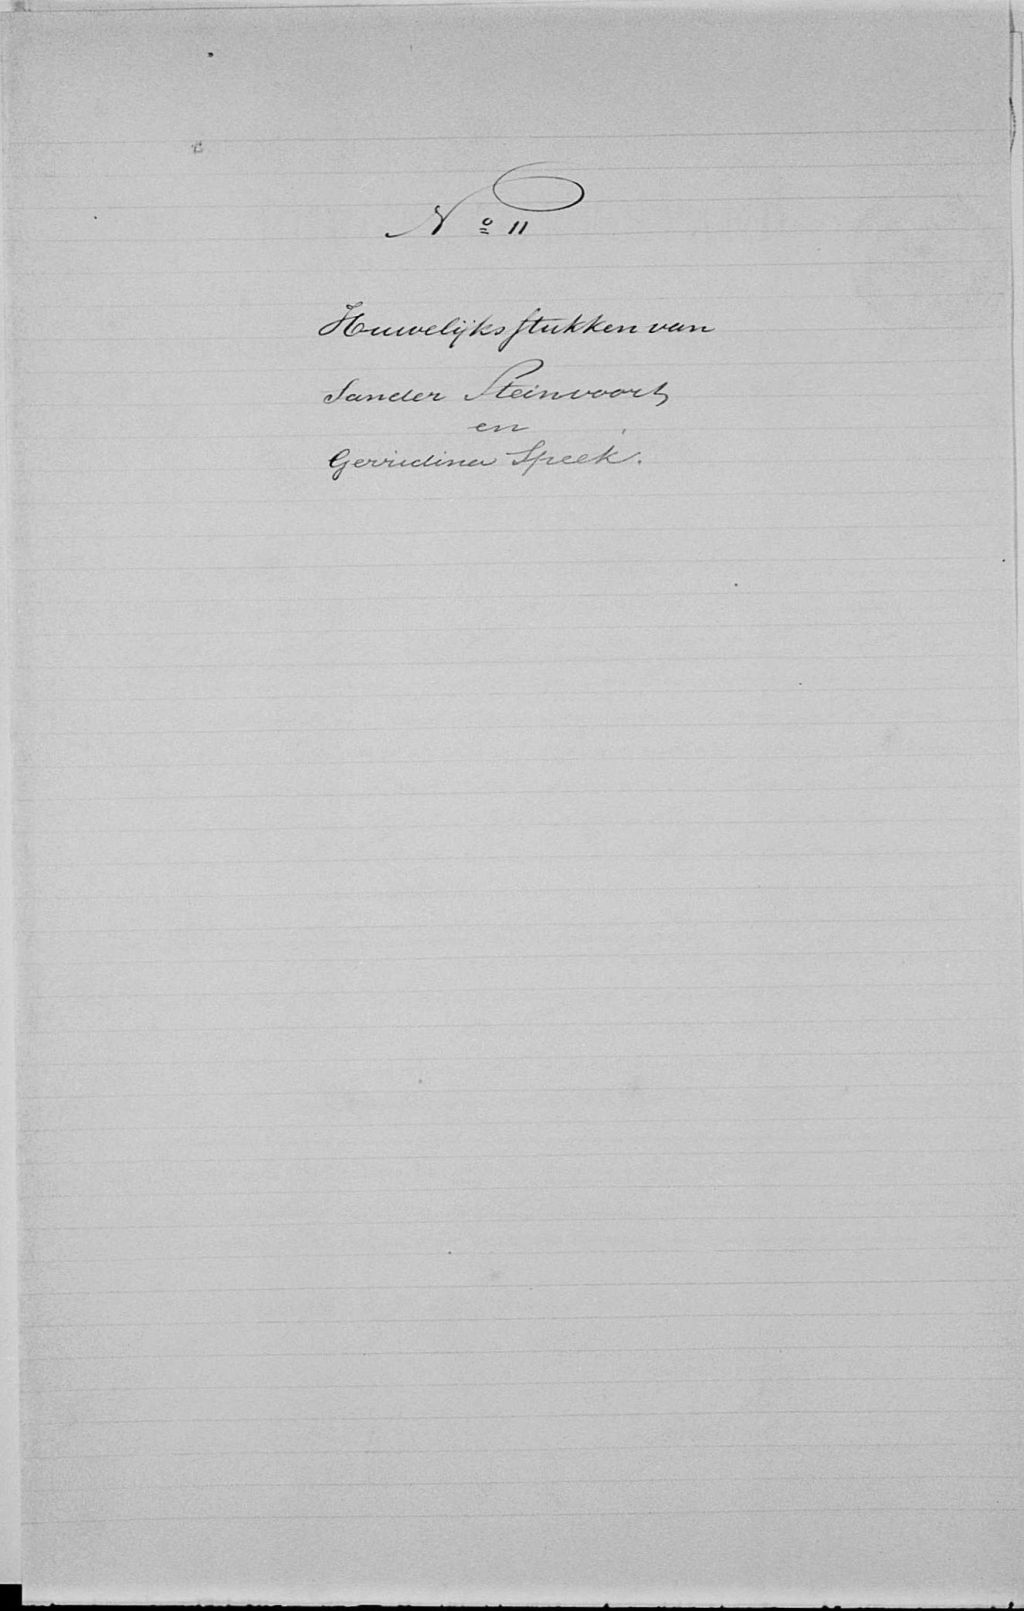 No 11
Huwelijks stukken van
Sander Steinvoort
en
Gerridina Speek.